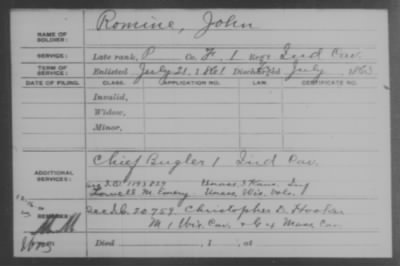 NAME OF SOLDIER: Romine, John
SERVICE: Late rank, P Co. F. 1 Reg't Ind Cav.
TERM OF SERVICE: Enlisted July 21, 1861 Discharged July, 1863
DATE OF FILING. CLASS. APPLICATION NO. LAW. CERTIFICATE NO.
Invalid,
Widow,
Minor,
ADDITIONAL SERVICES: Chief Bugler 1 Ind Cav.
Lowell M.
REMARKS: 20759 Christopher D. Hooker
M 1 Wis. Cav. & G 4 Mass Cav.
Died , 1 , at